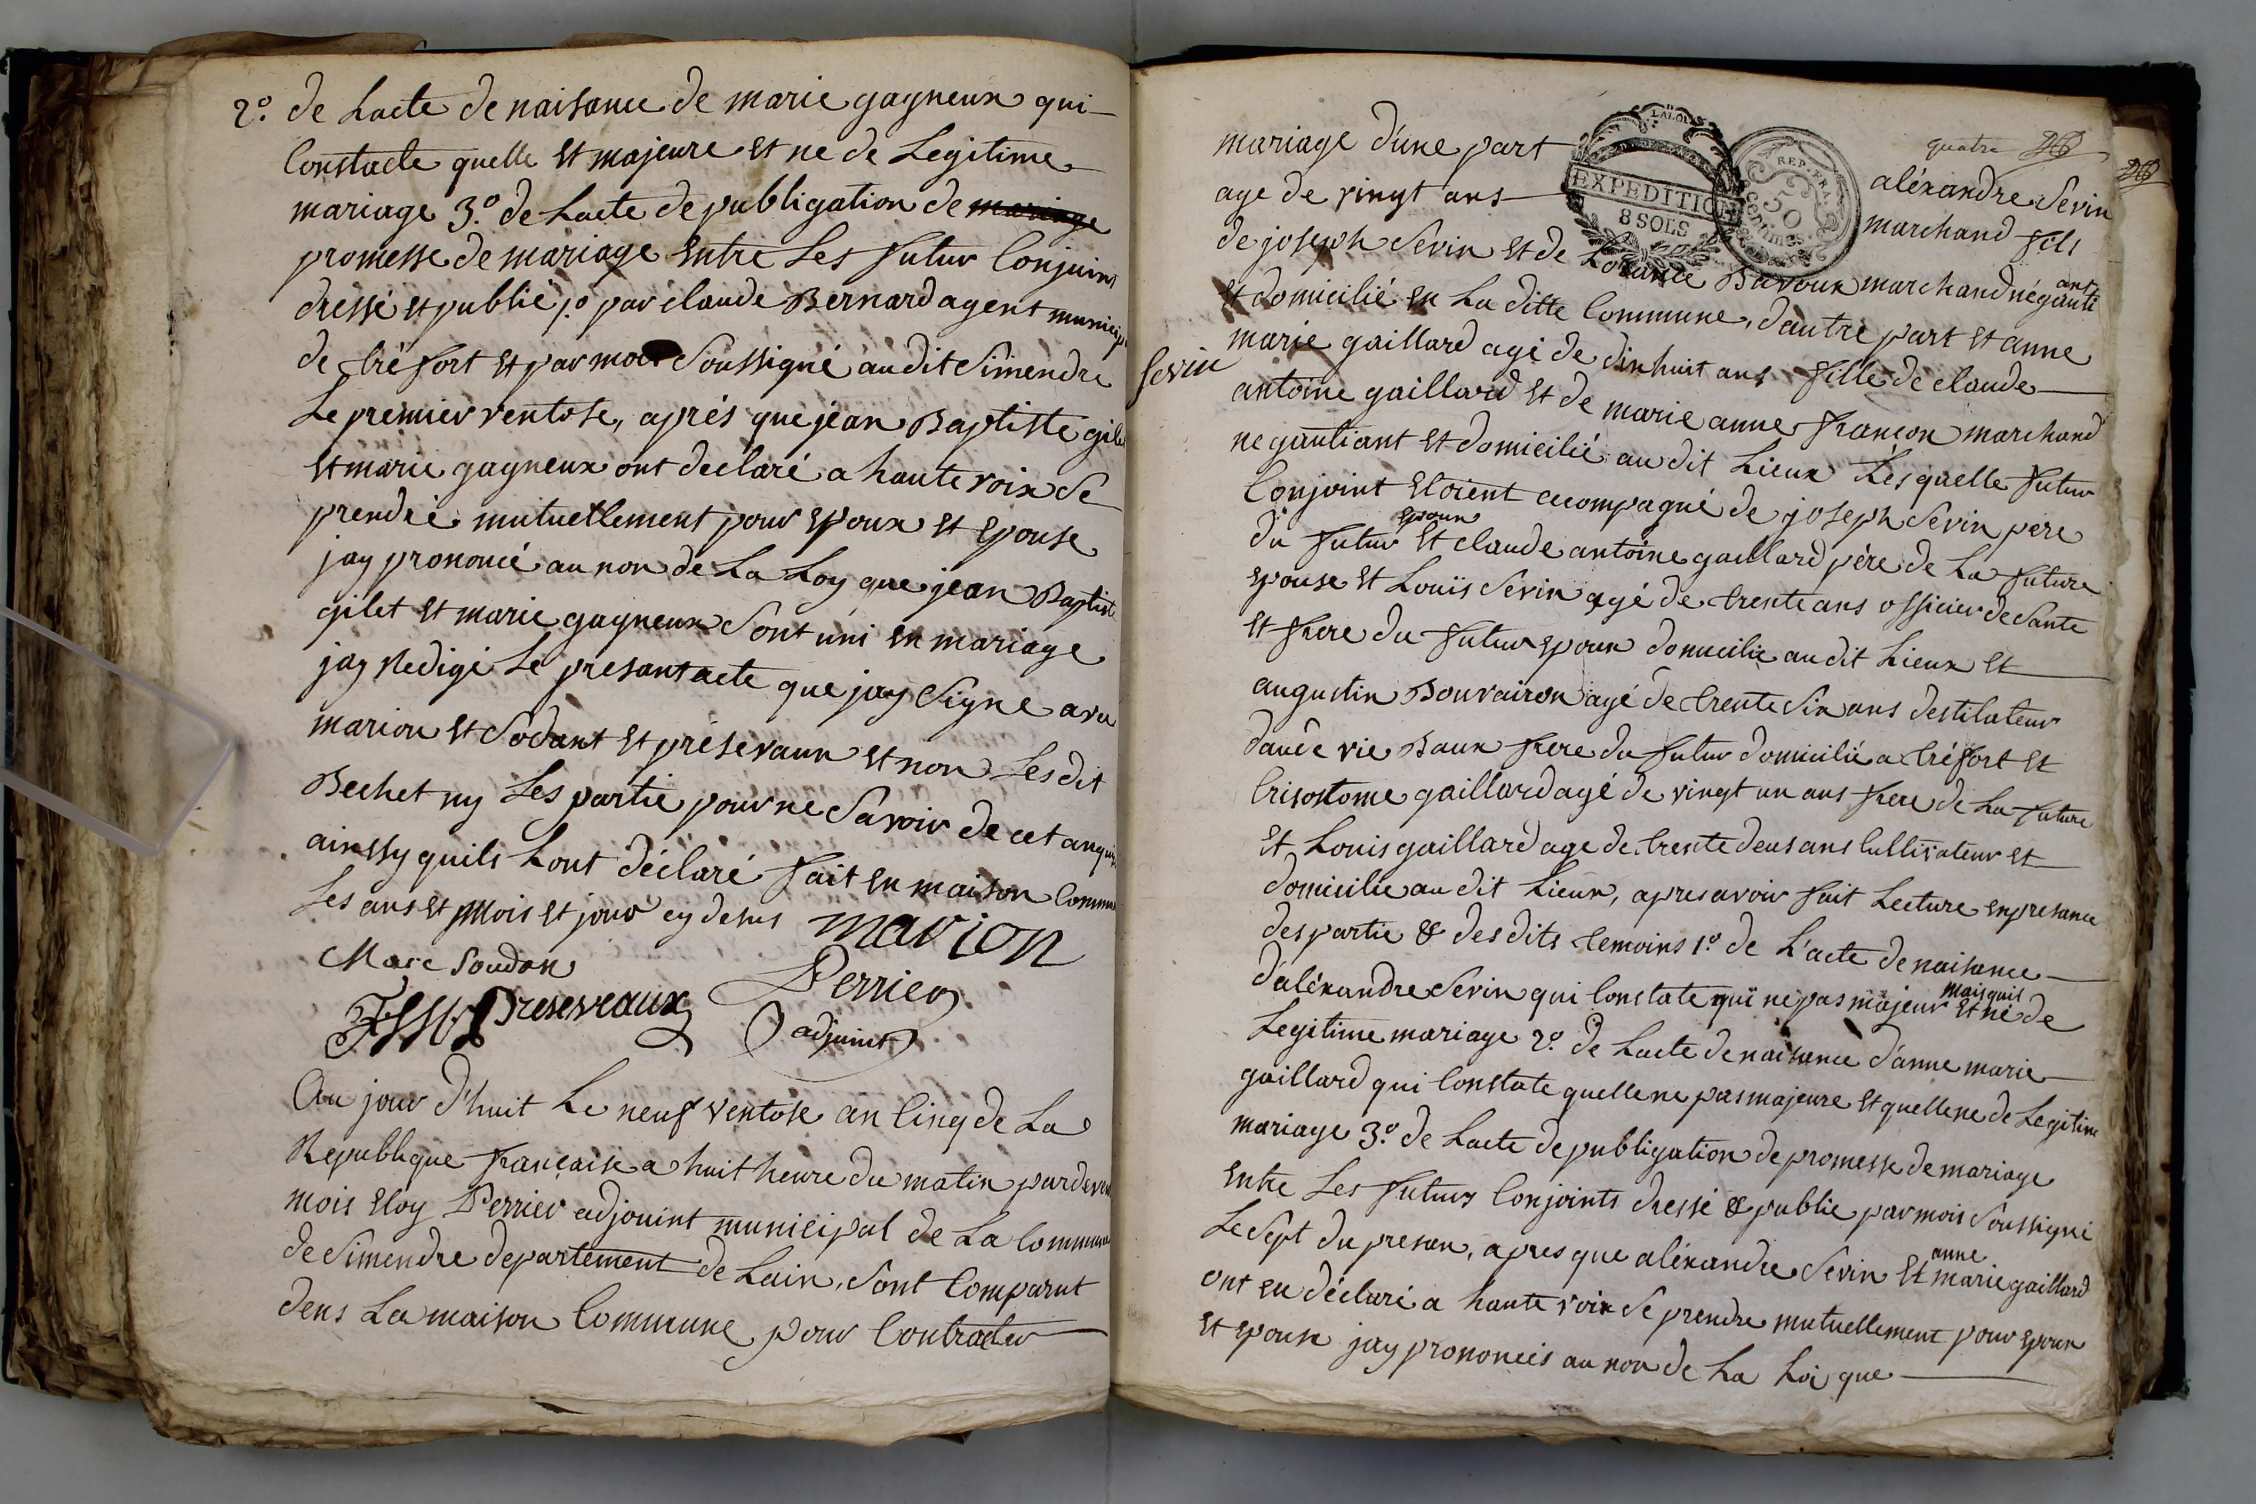 2.° de Lacte de naisance de marie gagneux qui
Constacte quelle Et majeure Et ne de Legitime
mariage 3.° de Lacte de publigation de mariage
promesse de mariage Entre Les futur Conjuins
dressé et publié p.° par claude Bernard agent municip
de tréfort Et par moi Soussigné au dit Simendre
Le premier ventose, aprés que jean Baptiste gilet
Et marie gagneux ont declaré a haute voix Se
prendre mutuellement pour Epoux Et Epouse
jay prononcé au non de La Loy que jean Baptist
gilet Et marie gagneux Sont uni En mariage
jay Redigé Le presant acte que jay Signe avec
marion Et Sodant Et présevaux Et non Les dit
Bechet ny Les partie pour ne Savoir de cet anquis
ainssy quils Lont déclaré fait En maison Commu
Les ans Et Mois Et jour cy desus marion
Marc Soudan
Perrier
Preseveaux
adjuint
Au jour d'huit Le neuf ventose an Cinq de La
Republique française a huit heure du matin pardeven
mois Eloy Perrier adjouint municipal de La Commune
de Simendre departement de Lain, Sont Comparut
dens La maison Commune pour Contracter
quatre
LALOI
EXPEDITION
8 SOLS
REP. FRA.
50
centimes
mariage d'une part aléxandre Sevin
age de vingt ans marchand fils
de joseph Sevin Et de Lorance Bavoux marchand négantiant
Et domicilié En La ditte Commune, d'autre part Et anne
Sevin
marie gaillard agé de dixhuit ans fille de claude
antoine gaillard Et de marie anne françon marchand
negantiant Et domicilié au dit Lieux Lésquelle futur
Conjoint Etoient accompagné de joseph Sevin pere
du futur epoux Et claude antoine gaillard père de La future
epouse Et Louis Sevin agé de trente ans officier de Sante
Et frere du futur Epoux domicilie au dit Lieux Et
augustin Bouvairon agé de trente Six ans destilateur
daude vie Baux frere du futur domicilié a tréfort Et
Crisostome gaillard agé de vingt un ans frere de La future
Et Louis gaillard age de trente deus ans Cultivateur Et
domicilie au dit Lieux, apres avoir fait Lecture en presance
des partie & des dits temoins 1.° de L'acte de naisance
d'aléxandre Sevin qui Constate qui ne pas majeur mais quil Et né de
Legitime mariage 2.° de Lacte de naisance d'anne marie
gaillard qui Constate quelle ne pas majeure Et quelle ne de Legitime
mariage 3.° de Lacte de publigation de promesse de mariage
Entre Les futurs Conjoints dressé & publie par mois Soussigné
Le Sept du presan, apres que aléxandre Sevin Et anne marie gaillard
ont Eu déclaré a haute voix Se prendre mutuellement pour Epoux
Et Epouse jay prononcés au non de La Loi que